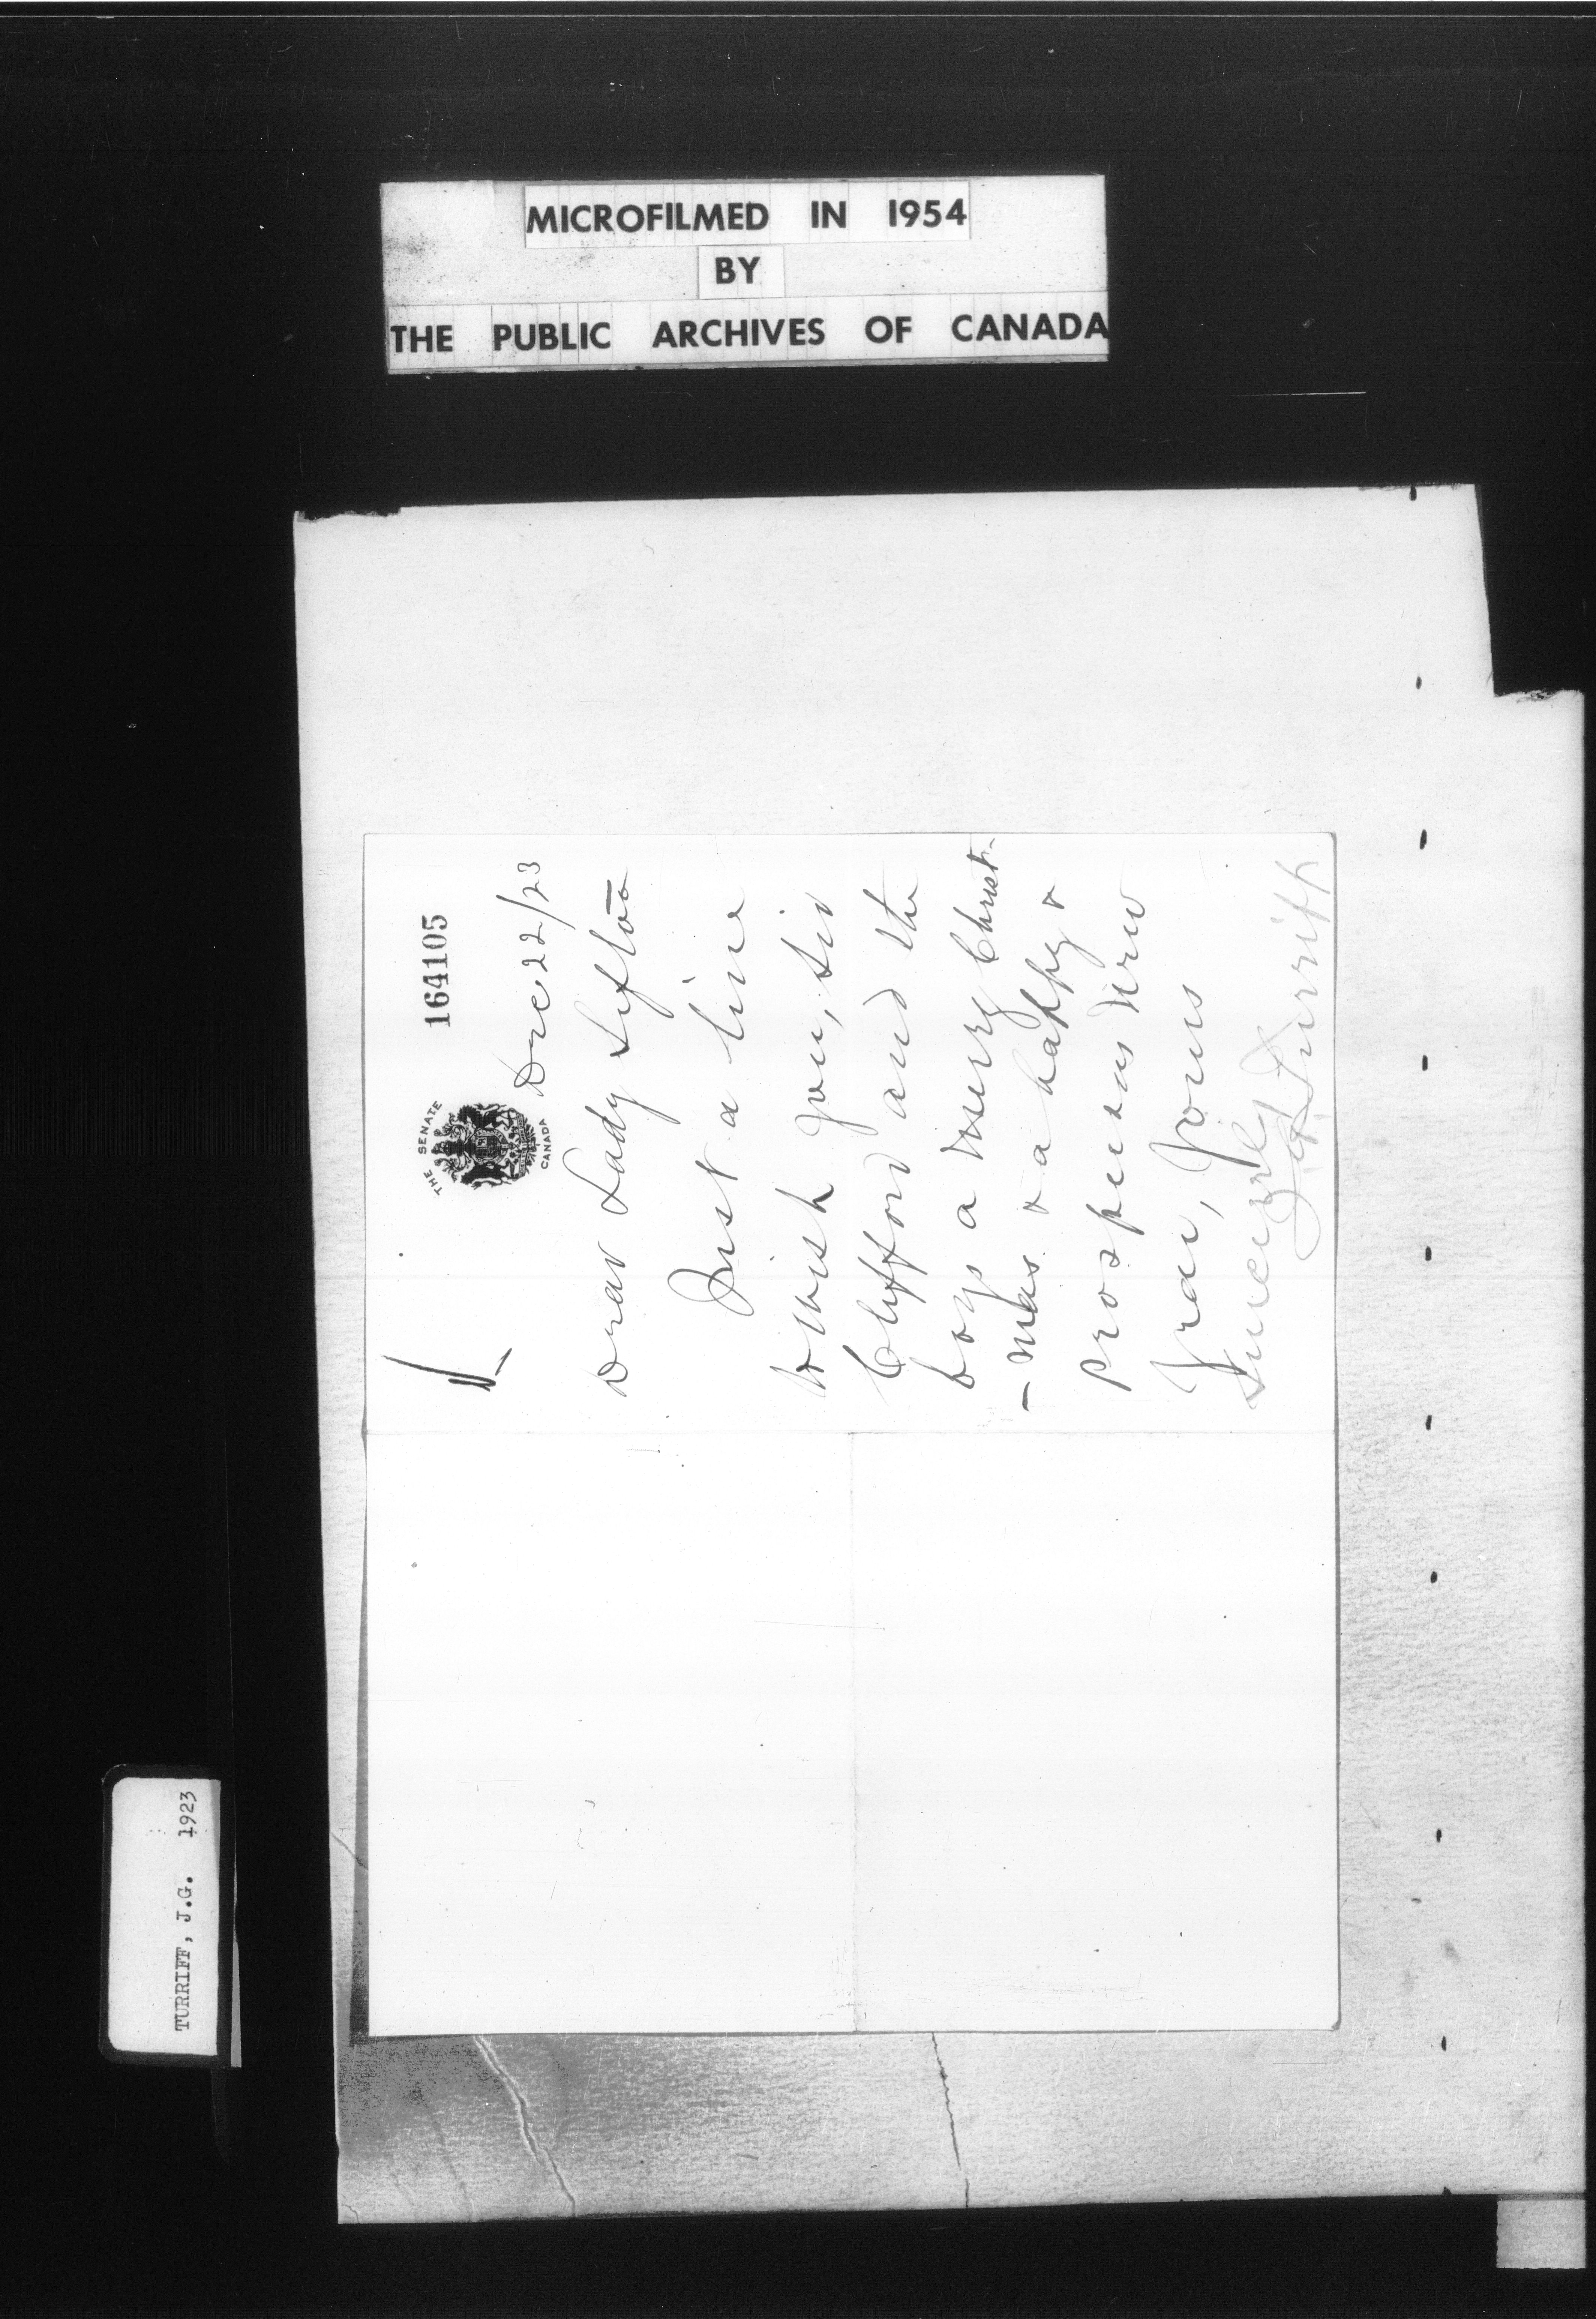 MICROFILMED IN 1954
BY
THE PUBLIC ARCHIVES OF CANADA
164105
THE SENATE
CANADA
Dec 22/23
Dear Lady Sifton
Just a line
to wish you, Sir
Clifford and the
boys a merry Christ-
-mas & a happy &
prosperous New
Year, Yours
Sincerely
J G Turriff
TURRIFF, J.G. 1923